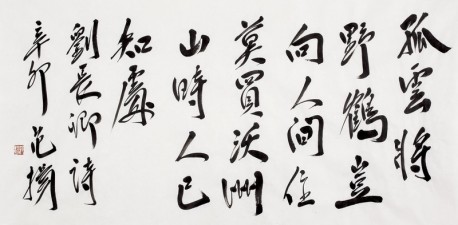 孤雲將
野鶴豈
向人間住
莫買沃洲
山時人已
知處
劉長卿詩
辛卯范